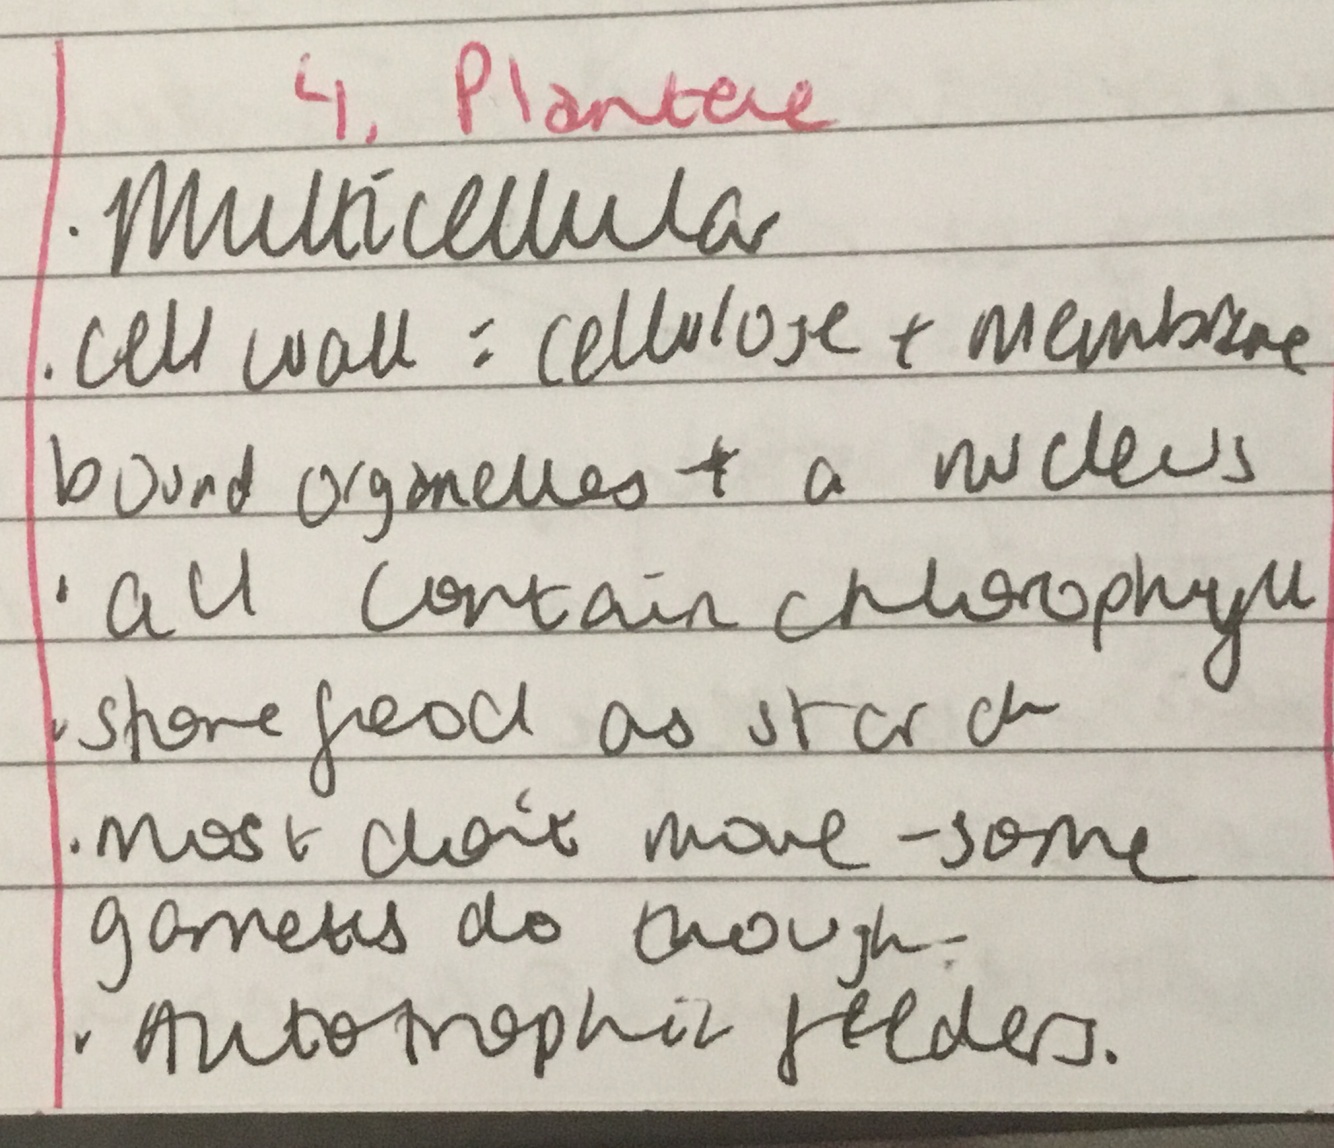 4. Plantae
· Multicellular
· cell wall = cellulose + membrane
bound organelles + a nucleus
· all contain chlorophyll
· store food as starch
· most don't move - some
gametes do though -
· Autotrophic feeders.